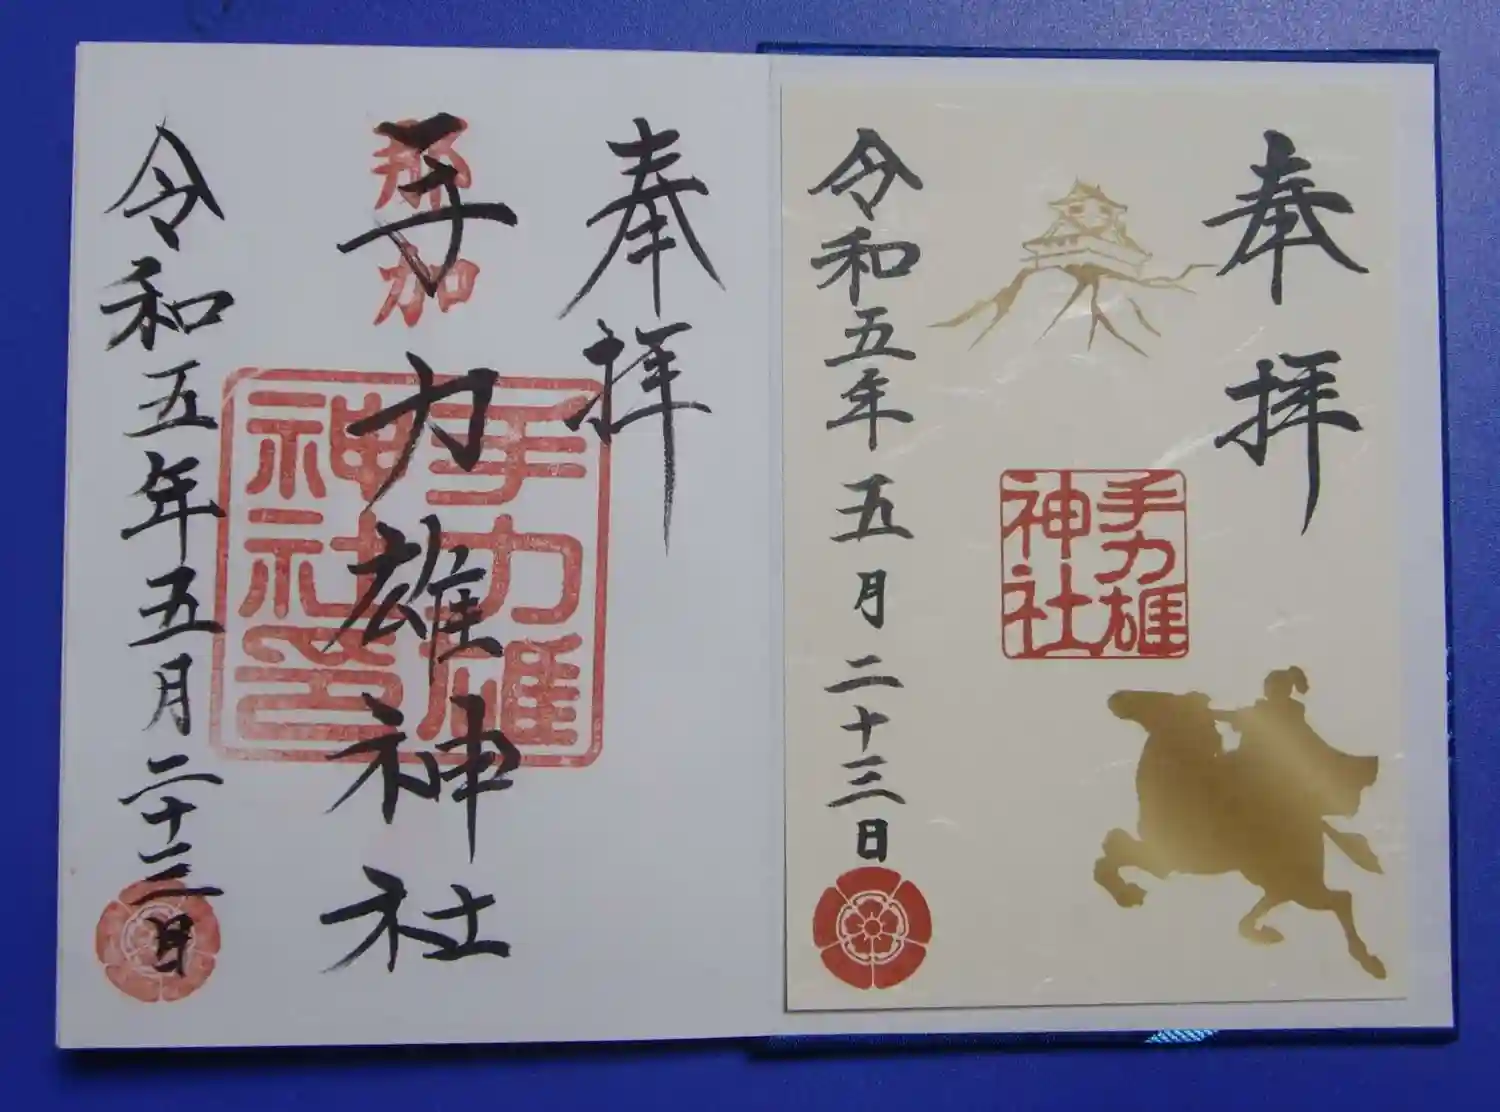 奉拝
手力雄神社
那加
手力雄
神社印
令和五年五月二十三日
奉拝
手力雄
神社
令和五年五月二十三日